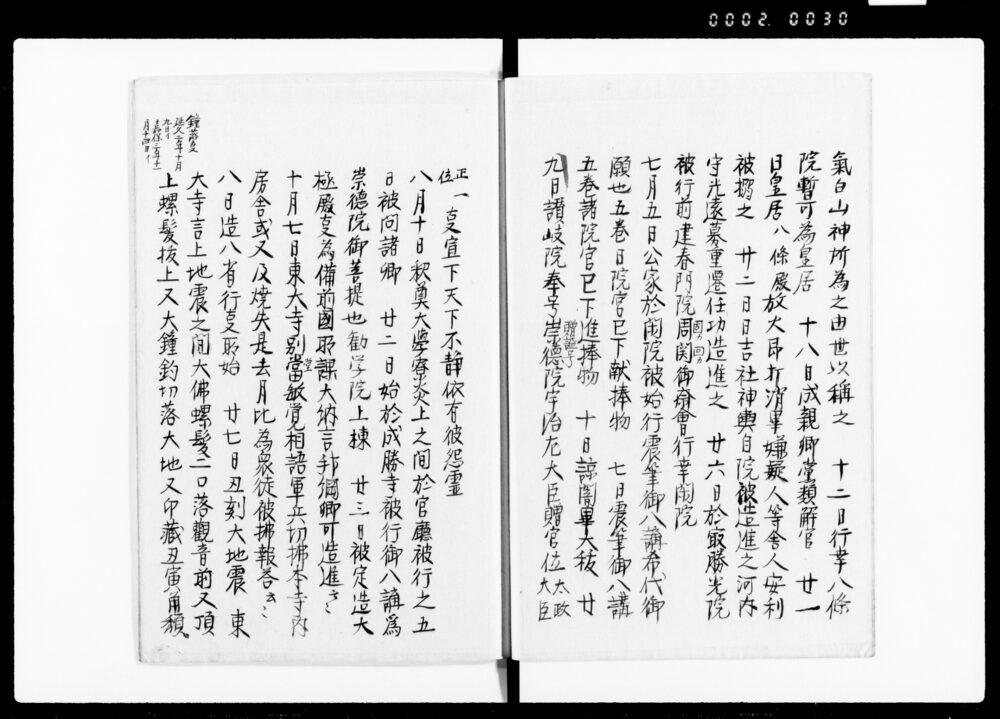 0002. 0030
氣白山神所為之由世以稱之　十二日行幸八條
院暫可為皇居　十八日成親卿黨類解官　廿一
日皇居八條殿放火即打消畢嫌疑人等舎人安利
被搦之　廿二日日吉社神輿自院被造進之河内
守光遠募重遷任功造進之　廿六日於最勝光院
被行前建春門院周関御斎會行幸閑院
七月五日公家於閑院被始行震筆御八講希代御
願也五巻日院宮已下献捧物　七日震筆御八講
五巻諸院宮已下進捧物　十日諒闇畢大秡　廿
九日讃岐院奉号崇德院宇治左大臣贈官位太政
大臣
正
位
一㕝宣下天下不静依有彼怨霊
八月十日釈奠大學寮炎上之間於官廳被行之五
日被問諸卿　廿二日始於成勝寺被行御八講為
崇德院御菩提也勧学院上棟　廿三日被定造大
極殿㕝為備前國所課大納言邦綱卿可造進云々
十月七日東大寺別當敏覚相語軍兵切拂本寺内
房舎或又及焼失是去月比為衆徒被拂報答云々
八日造八省行㕝所始　廿七日丑刻大地震　東
大寺言上地震之間大佛螺髪二口落觀音前又頂
上螺髪抜上又大鐘釣切落大地又印蔵丑寅角頽
鐘落㕝
延久二年十月